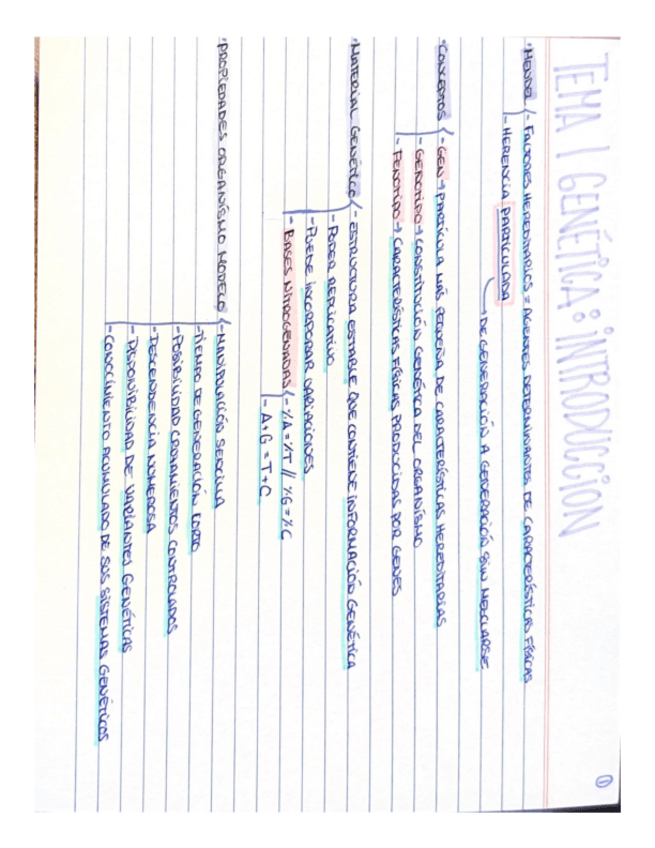 TEMA 1 GENÉTICA: INTRODUCCION
①
-MENDEL (- FACTORES HEREDITARIOS = AGENTES DETERMINANTES DE CARACTERÍSTICAS FÍSICAS
- HERENCIA PARTICULADA
→ DE GENERACIÓN A GENERACIÓN SIN MEZCLARSE
-CONCEPTOS (- GEN → PARTÍCULA MÁS PEQUEÑA DE CARACTERÍSTICAS HEREDITARIAS
- GENOTIPO → CONSTITUCIÓN GENÉTICA DEL ORGANISMO
- FENOTIPO → CARACTERÍSTICAS FÍSICAS PRODUCIDAS POR GENES
-MATERIAL GENÉTICO (- ESTRUCTURA ESTABLE QUE CONTIENE INFORMACIÓN GENÉTICA
- PODER REPLICATIVO
- PUEDE INCORPORAR VARIACIONES
- BASES NITROGENADAS (- %A = %T // %G = %C
- A+G = T+C
-PROPIEDADES ORGANISMO MODELO (- MANIPULACIÓN SENCILLA
-TIEMPO DE GENERACIÓN CORTO
-POSIBILIDAD CRUZAMIENTOS CONTROLADOS
-DESCENDENCIA NUMEROSA
- DISPONIBILIDAD DE VARIANTES GENÉTICAS
- CONOCIMIENTO ACUMULADO DE SUS SISTEMAS GENÉTICOS